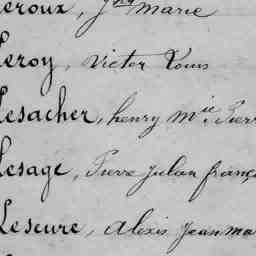 Leroux, Jph Marie
Leroy, Victor Louis
Lesacher, henry Mie Pierr
Lesage, Pierre Julien franç
Lescure, Alexis Jean Ma